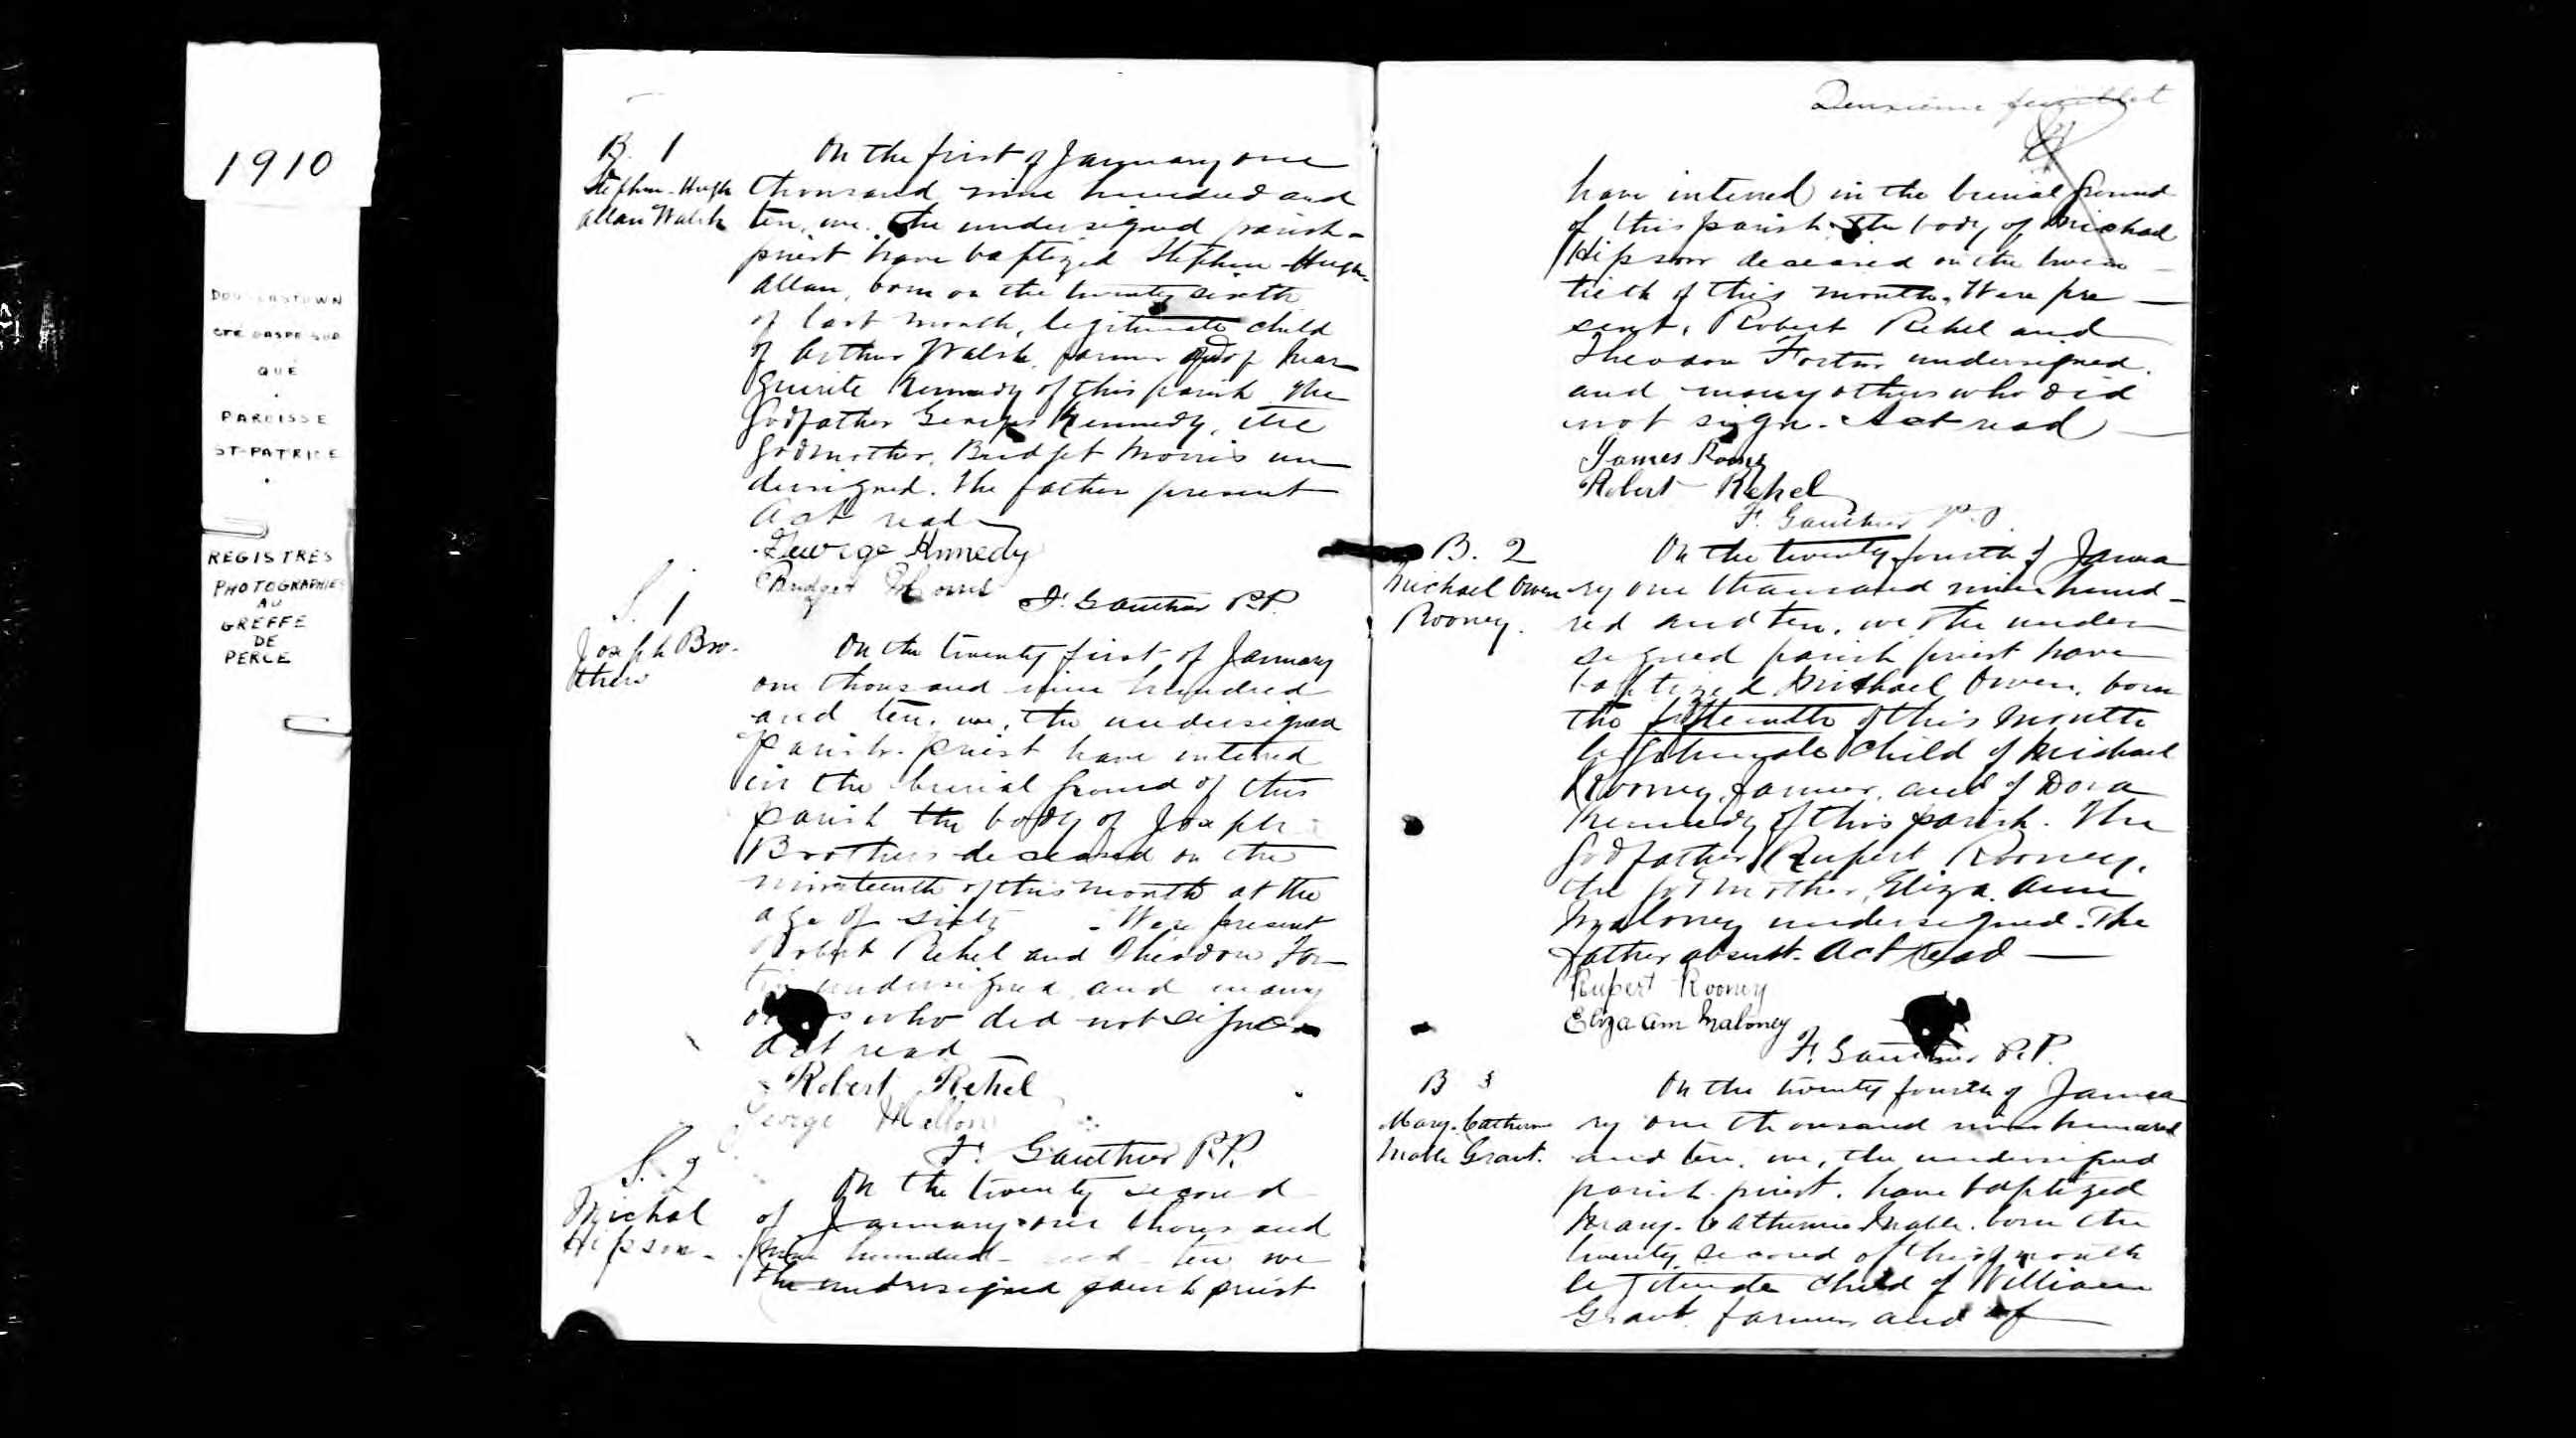 1910
DOUGLASTOWN
CTÉ GASPÉ SUD
QUÉ
PAROISSE
ST-PATRICE
REGISTRES
PHOTOGRAPHIES
AU
GREFFE
DE
PERCE
B. 1
Stephen-Hugh
Allan Walsh
On the first of January one
thousand nine hundred and
ten, we, the undersigned parish-
priest have baptized Stephen-Hugh-
Allan, born on the twenty sixth
of last month, legitimate child
of Arthur Walsh, farmer and of Mar
guerite Kennedy of this parish. The
godfather George Kennedy, the
godmother, Bridget Morris un
dersigned. The father present
Act read
George Kennedy
Bridget Morris
F. Gauthier P.P.
S. 1
Joseph Bro-
thers
On the twenty first of January
one thousand nine hundred
and ten, we, the undersigned
parish-priest have interred
in the burial ground of this
parish the body of Joseph
Brothers deceased on the
nineteenth of this month at the
age of sixty - Were present
Robert Rehel and Theodore For
tin undersigned, and many
others who did not sign
Act read
Robert Rehel
George
F. Gauthier P.P.
S. 2
Michal
Hipson-
On the twenty second
of January one thousand
nine hundred and ten we
the undersigned parish priest
Deuxième feuillet
have interred in the burial ground
of this parish the body of Michael
Hipson deceased on the twen-
tieth of this month. Were pre-
sent, Robert Rehel and
Theodore Fortin undersigned
and many others who did
not sign. Act read
James Rooney
Robert Rehel
F. Gauthier P.P.
B. 2
Michael Owen
Rooney.
On the twenty fourth of Janua
ry one thousand nine hund-
red and ten, we the under
signed parish priest have
baptized Michael Owen, born
the fifteenth of this month
legitimate child of Michael
Rooney, farmer, and of Dora
Kennedy of this parish. The
godfather Rupert Rooney,
the godmother, Eliza Ann
Maloney undersigned. The
father absent. Act read
Rupert Rooney
Eliza Ann Maloney
F. Gauthier P.P.
B 3
Mary-Catherine
Mable Grant.
On the twenty fourth of Janua
ry one thousand nine hundred
and ten, we, the undersigned
parish priest, have baptized
Mary-Catherine Mable, born the
twenty second of this month
legitimate child of William
Grant, farmer and of